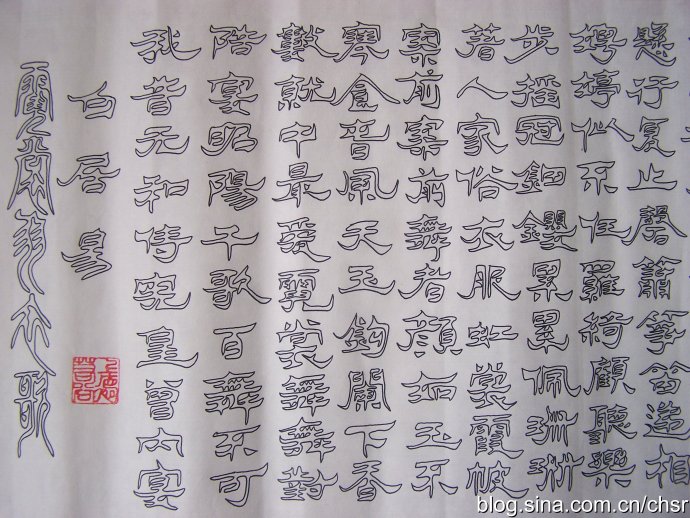 霓裳羽衣歌
白居易
我昔元和侍憲皇曾内宴
階宴昭陽千歌百舞不可
數就中最愛霓裳舞舞對
寒食春風天玉鉤闌下香
案前案前舞者顏如玉不
著人家俗衣服虹裳霞帔
步搖冠鈿瓔累累佩珊珊
娉婷似不任羅綺顧聽樂
懸行復止磬簫箏笛遞相
blog.sina.com.cn/chsr